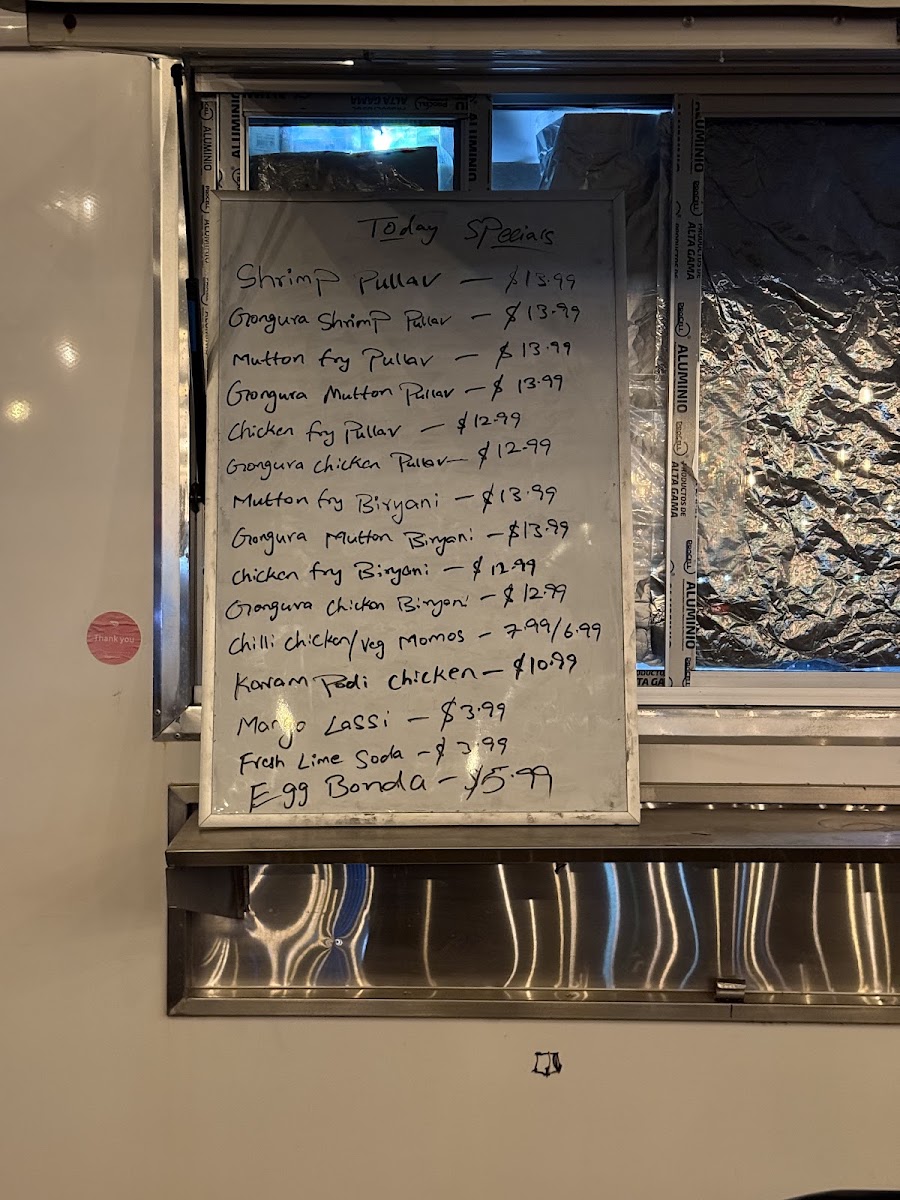 Today Specials
Shrimp Pullav - $13.99
Gongura Shrimp Pullav - $13.99
Mutton fry Pullav - $13.99
Gongura Mutton Pullav - $13.99
Chicken fry Pullav - $12.99
Gongura chicken Pullav - $12.99
Mutton fry Biryani - $13.99
Gongura Mutton Biryani - $13.99
chicken fry Biryani - $12.99
Gongura chicken Biryani - $12.99
Chilli chicken/veg Momos - 7.99/6.99
Karam Podi chicken - $10.99
Mango Lassi - $3.99
Fresh Lime Soda - $3.99
Egg Bonda - $5.99
Thank you
ALUMINIO
ALUMINIO
ALTA GAMA
ALUMINIO
PRODUCTOS DE
ALTA GAMA
ALUMINIO
PRODUCTOS DE
ALTA GAMA
ALUMINIO